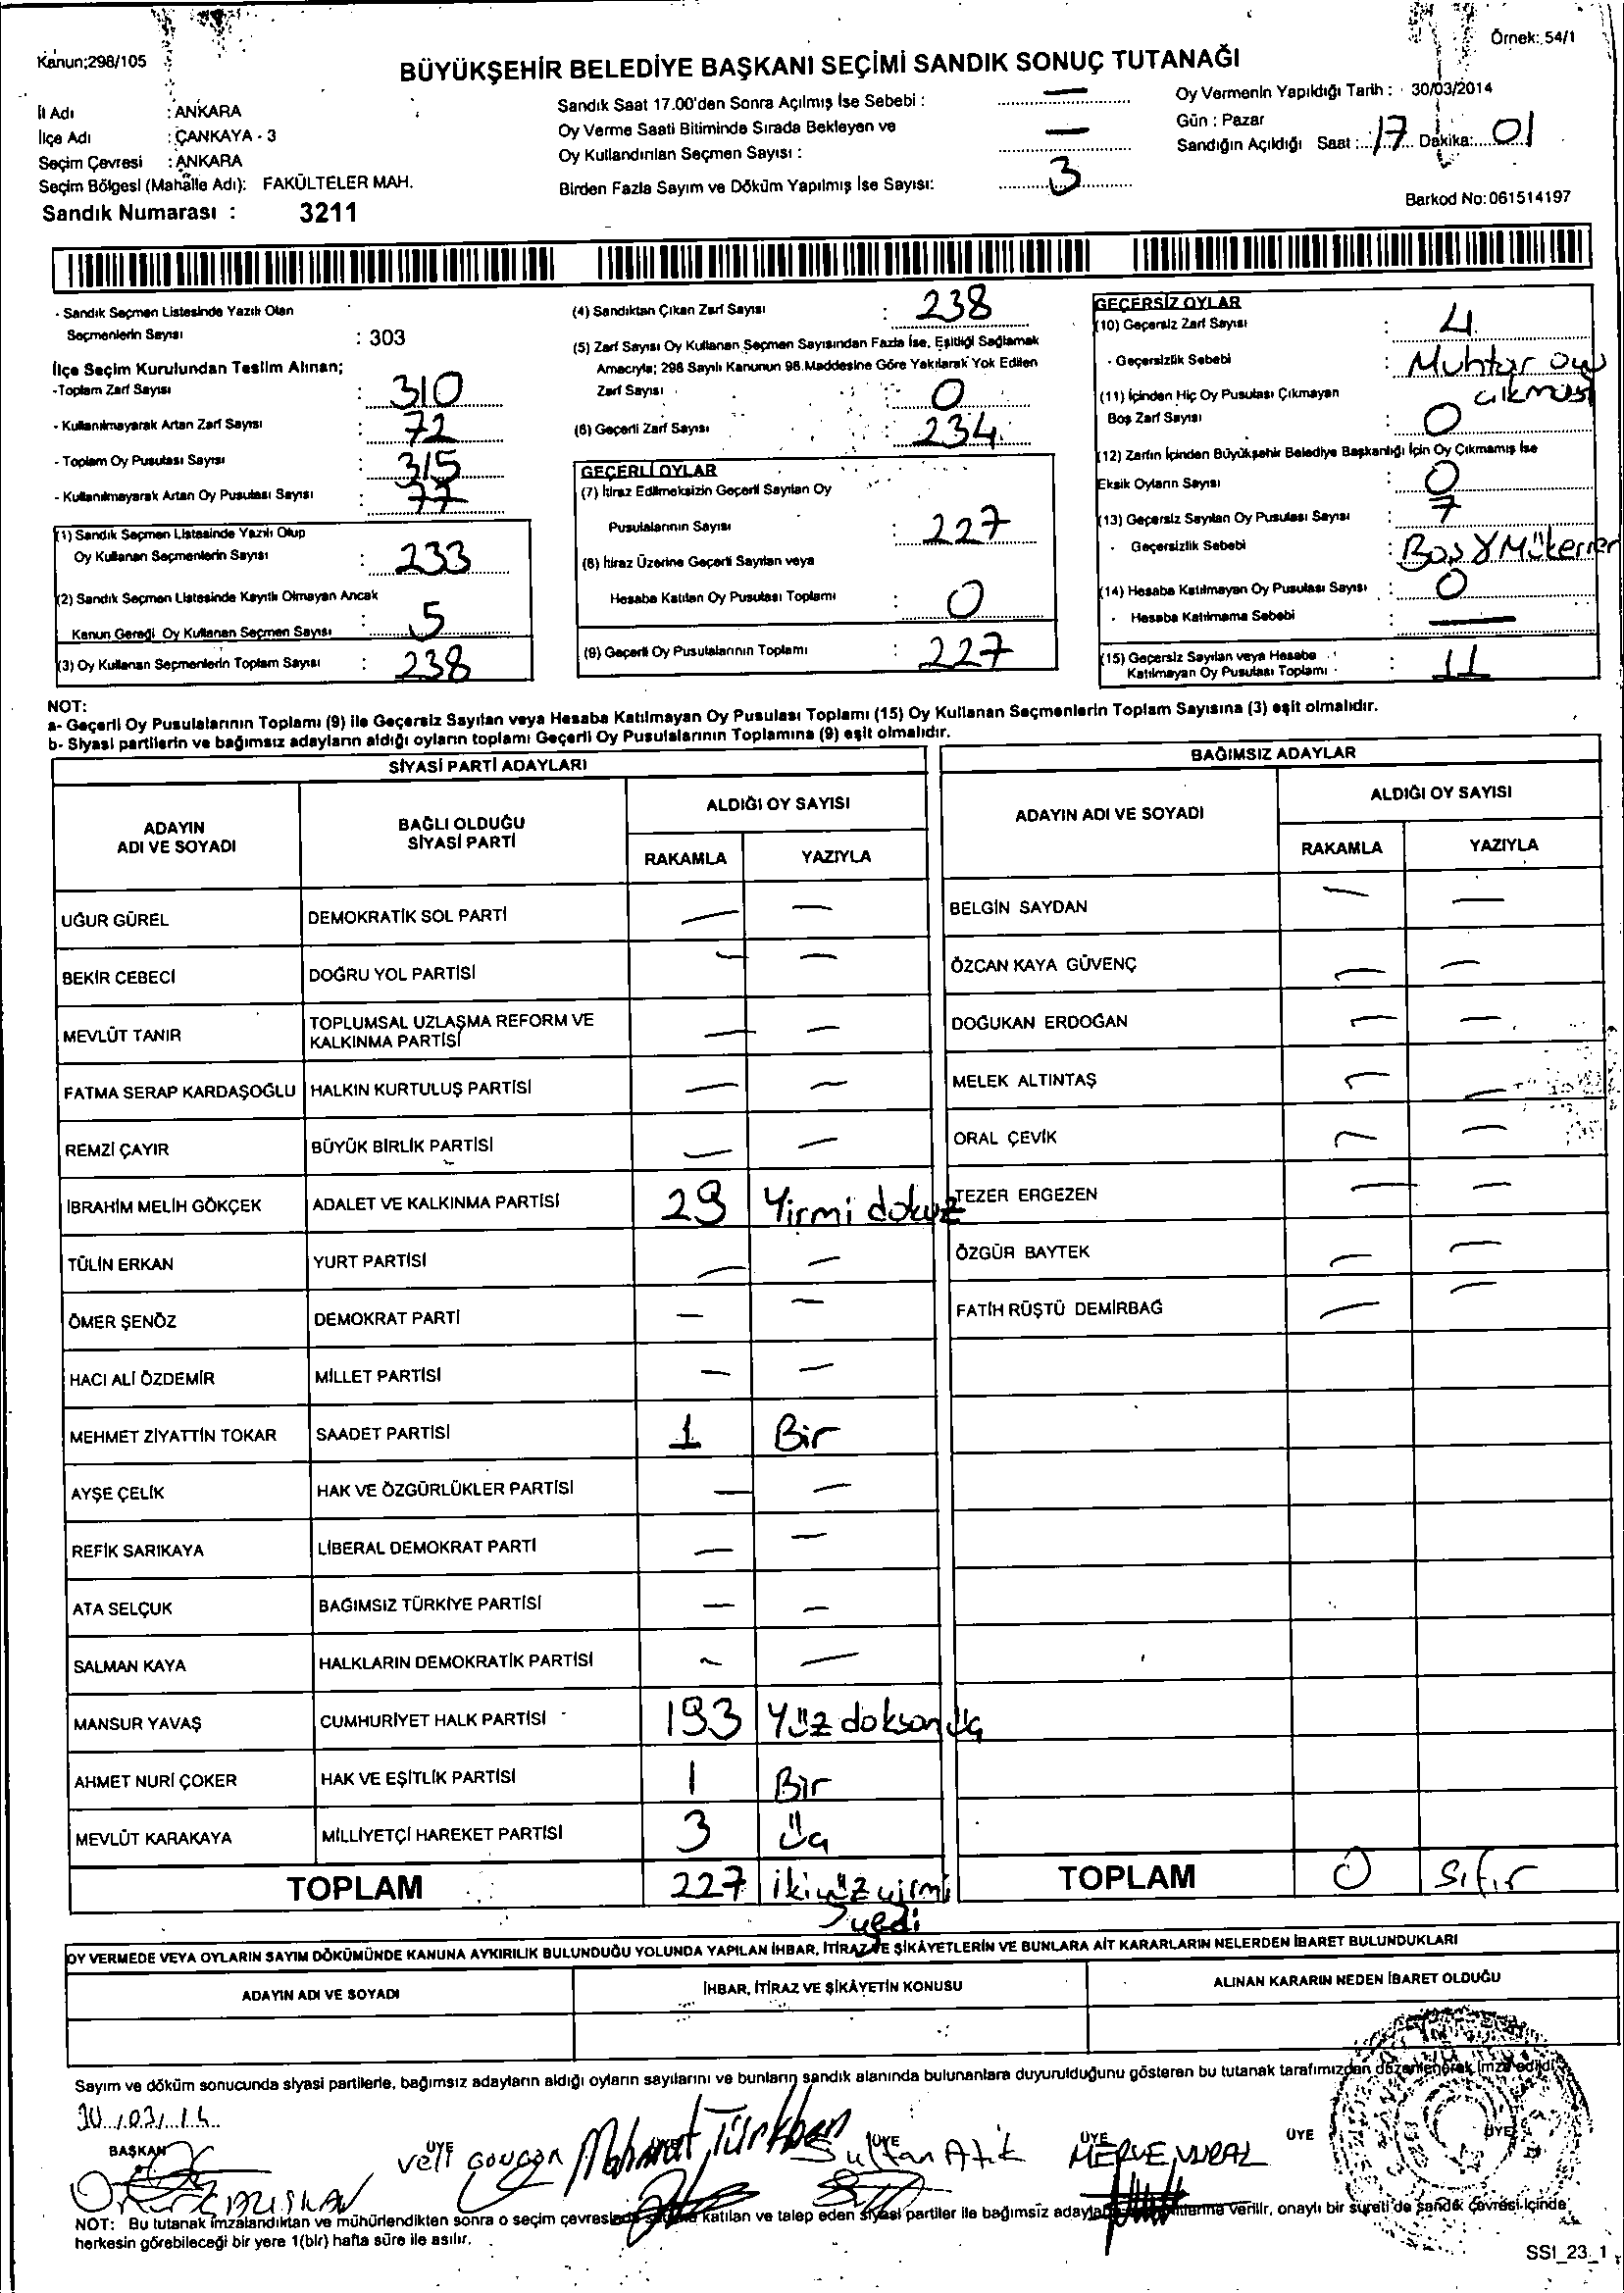 Örnek: 54/1
Kanun;298/105
BÜYÜKŞEHİR BELEDİYE BAŞKANI SEÇİMİ SANDIK SONUÇ TUTANAĞI
İl Adı : ANKARA
İlçe Adı : ÇANKAYA - 3
Seçim Çevresi : ANKARA
Seçim Bölgesi (Mahalle Adı): FAKÜLTELER MAH.
Sandık Numarası : 3211
Sandık Saat 17.00'den Sonra Açılmış İse Sebebi : —
Oy Verme Saati Bitiminde Sırada Bekleyen ve
Oy Kullandırılan Seçmen Sayısı : —
Birden Fazla Sayım ve Döküm Yapılmış İse Sayısı: 3
Oy Vermenin Yapıldığı Tarih : 30/03/2014
Gün : Pazar
Sandığın Açıldığı Saat : 17 Dakika: 01
Barkod No: 061514197
- Sandık Seçmen Listesinde Yazılı Olan
Seçmenlerin Sayısı : 303
İlçe Seçim Kurulundan Teslim Alınan;
-Toplam Zarf Sayısı : 310
- Kullanılmayarak Artan Zarf Sayısı : 72
- Toplam Oy Pusulası Sayısı : 315
- Kullanılmayarak Artan Oy Pusulası Sayısı : 77
(1) Sandık Seçmen Listesinde Yazılı Olup
Oy Kullanan Seçmenlerin Sayısı : 233
(2) Sandık Seçmen Listesinde Kayıtlı Olmayan Ancak
Kanun Gereği Oy Kullanan Seçmen Sayısı : 5
(3) Oy Kullanan Seçmenlerin Toplam Sayısı : 238
(4) Sandıktan Çıkan Zarf Sayısı : 238
(5) Zarf Sayısı Oy Kullanan Seçmen Sayısından Fazla İse, Eşitliği Sağlamak
Amacıyla; 298 Sayılı Kanunun 98.Maddesine Göre Yakılarak Yok Edilen
Zarf Sayısı : 0
(6) Geçerli Zarf Sayısı : 234
GEÇERLİ OYLAR
(7) İtiraz Edilmeksizin Geçerli Sayılan Oy
Pusulalarının Sayısı : 227
(8) İtiraz Üzerine Geçerli Sayılan veya
Hesaba Katılan Oy Pusulası Toplamı : 0
(9) Geçerli Oy Pusulalarının Toplamı : 227
GEÇERSİZ OYLAR
(10) Geçersiz Zarf Sayısı : 4
- Geçersizlik Sebebi : Muhtar oyu
çıkması
(11) İçinden Hiç Oy Pusulası Çıkmayan
Boş Zarf Sayısı : 0
(12) Zarfın İçinden Büyükşehir Belediye Başkanlığı İçin Oy Çıkmamış İse
Eksik Oyların Sayısı : 0
(13) Geçersiz Sayılan Oy Pusulası Sayısı : 7
- Geçersizlik Sebebi : Boş Mükerrer
(14) Hesaba Katılmayan Oy Pusulası Sayısı : 0
- Hesaba Katılmama Sebebi : —
(15) Geçersiz Sayılan veya Hesaba
Katılmayan Oy Pusulası Toplamı : 11
NOT:
a- Geçerli Oy Pusulalarının Toplamı (9) ile Geçersiz Sayılan veya Hesaba Katılmayan Oy Pusulası Toplamı (15) Oy Kullanan Seçmenlerin Toplam Sayısına (3) eşit olmalıdır.
b- Siyasi partilerin ve bağımsız adayların aldığı oyların toplamı Geçerli Oy Pusulalarının Toplamına (9) eşit olmalıdır.
SİYASİ PARTİ ADAYLARI
ADAYIN ADI VE SOYADI BAĞLI OLDUĞU SİYASİ PARTİ ALDIĞI OY SAYISI
RAKAMLA YAZIYLA
UĞUR GÜREL DEMOKRATİK SOL PARTİ — —
BEKİR CEBECİ DOĞRU YOL PARTİSİ — —
MEVLÜT TANIR TOPLUMSAL UZLAŞMA REFORM VE KALKINMA PARTİSİ — —
FATMA SERAP KARDAŞOĞLU HALKIN KURTULUŞ PARTİSİ — —
REMZİ ÇAYIR BÜYÜK BİRLİK PARTİSİ — —
İBRAHİM MELİH GÖKÇEK ADALET VE KALKINMA PARTİSİ 29 Yirmi dokuz
TÜLİN ERKAN YURT PARTİSİ — —
ÖMER ŞENÖZ DEMOKRAT PARTİ — —
HACI ALİ ÖZDEMİR MİLLET PARTİSİ — —
MEHMET ZİYATTİN TOKAR SAADET PARTİSİ 1 Bir
AYŞE ÇELİK HAK VE ÖZGÜRLÜKLER PARTİSİ — —
REFİK SARIKAYA LİBERAL DEMOKRAT PARTİ — —
ATA SELÇUK BAĞIMSIZ TÜRKİYE PARTİSİ — —
SALMAN KAYA HALKLARIN DEMOKRATİK PARTİSİ — —
MANSUR YAVAŞ CUMHURİYET HALK PARTİSİ 193 Yüz doksan üç
AHMET NURİ ÇOKER HAK VE EŞİTLİK PARTİSİ 1 Bir
MEVLÜT KARAKAYA MİLLİYETÇİ HAREKET PARTİSİ 3 üç
TOPLAM 227 ikiyüz yirmi
yedi
BAĞIMSIZ ADAYLAR
ADAYIN ADI VE SOYADI ALDIĞI OY SAYISI
RAKAMLA YAZIYLA
BELGİN SAYDAN — —
ÖZCAN KAYA GÜVENÇ — —
DOĞUKAN ERDOĞAN — —
MELEK ALTINTAŞ — —
ORAL ÇEVİK — —
TEZER ERGEZEN — —
ÖZGÜR BAYTEK — —
FATİH RÜŞTÜ DEMİRBAĞ — —
TOPLAM 0 sıfır
OY VERMEDE VEYA OYLARIN SAYIM DÖKÜMÜNDE KANUNA AYKIRILIK BULUNDUĞU YOLUNDA YAPILAN İHBAR, İTİRAZ VE ŞİKÂYETLERİN VE BUNLARA AİT KARARLARIN NELERDEN İBARET BULUNDUKLARI
ADAYIN ADI VE SOYADI İHBAR, İTİRAZ VE ŞİKÂYETİN KONUSU ALINAN KARARIN NEDEN İBARET OLDUĞU
Sayım ve döküm sonucunda siyasi partilerle, bağımsız adayların aldığı oyların sayılarını ve bunların sandık alanında bulunanlara duyurulduğunu gösteren bu tutanak tarafımızdan düzenlenerek imza edildi.
30/03/14
BAŞKAN ÜYE ÜYE ÜYE ÜYE ÜYE
Veli Mahmut Türkben Sultan Atik MERVE VURAL
NOT: Bu tutanak imzalandıktan ve mühürlendikten sonra o seçim çevresinde katılan ve talep eden siyasi partiler ile bağımsız verilir, onaylı bir sureti de sandık çevresi içinde
herkesin görebileceği bir yere 1(bir) hafta süre ile asılır.
SSI_23_1